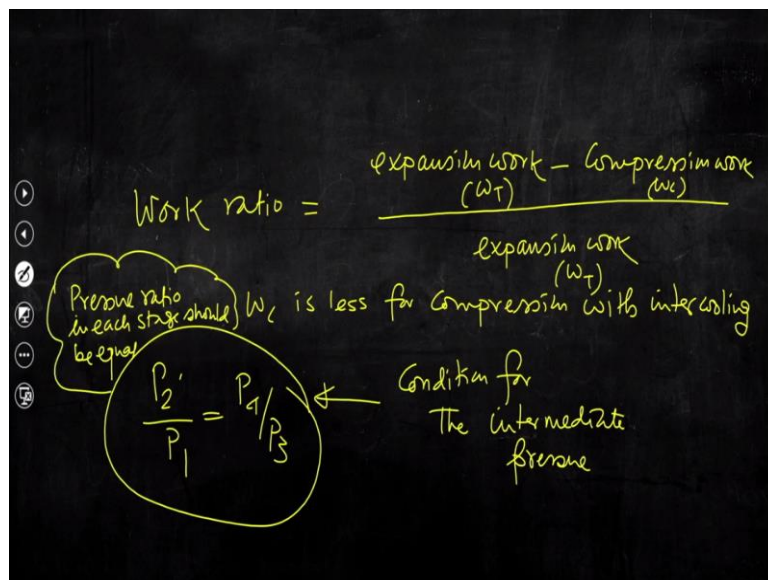 Work ratio = expansion work (WT) - Compression work (Wc) / expansion work (WT)
Pressure ratio
in each stage should
be equal
Wc is less for compression with intercooling
P2' / P1 = P4 / P3
Condition for
The intermediate
pressure